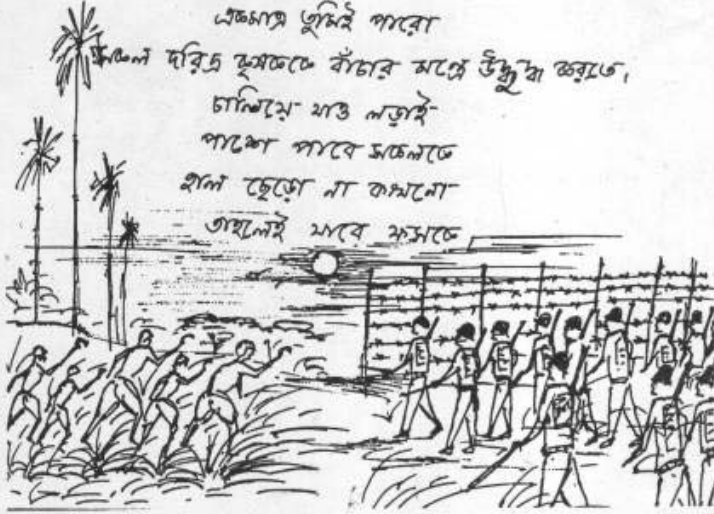 একমাত্র তুমিই পারো
সকল দরিদ্র কৃষককে বাঁচার মন্ত্রে উদ্বুদ্ধ করতে,
চালিয়ে যাও লড়াই
পাশে পাবে সকলকে
হাল ছেড়ো না কখনো
তাহলেই যাবে ফসকে